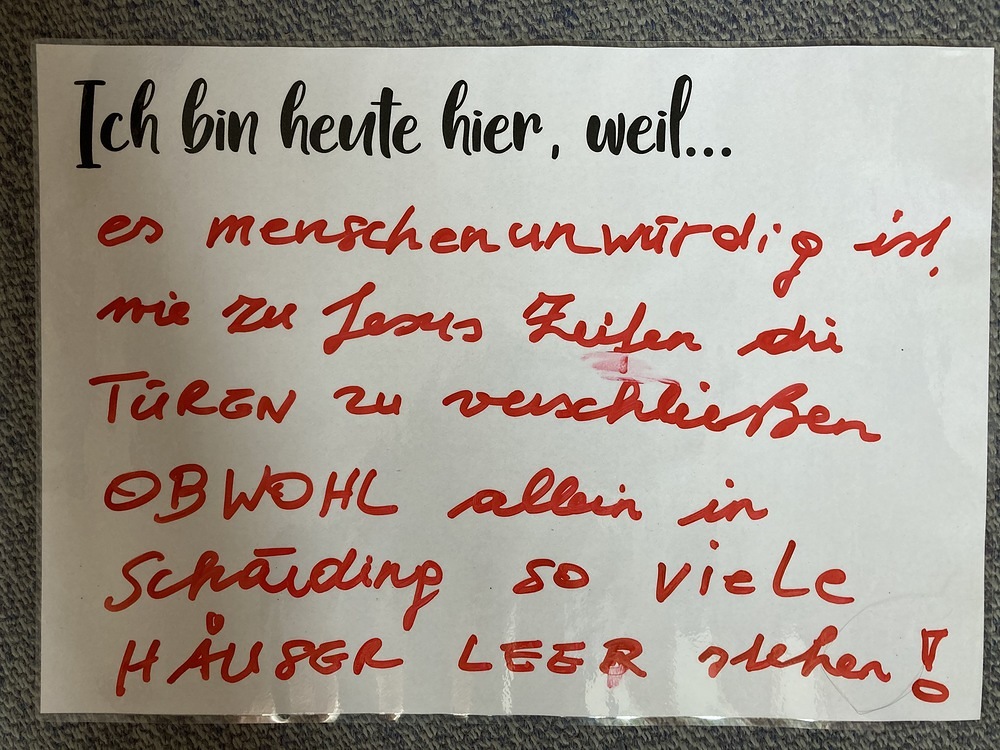 Ich bin heute hier, weil...
es menschenunwürdig ist,
wie zu Jesus Zeiten die
TÜREN zu verschließen
OBWOHL allein in
Schärding so viele
HÄUSER LEER stehen!